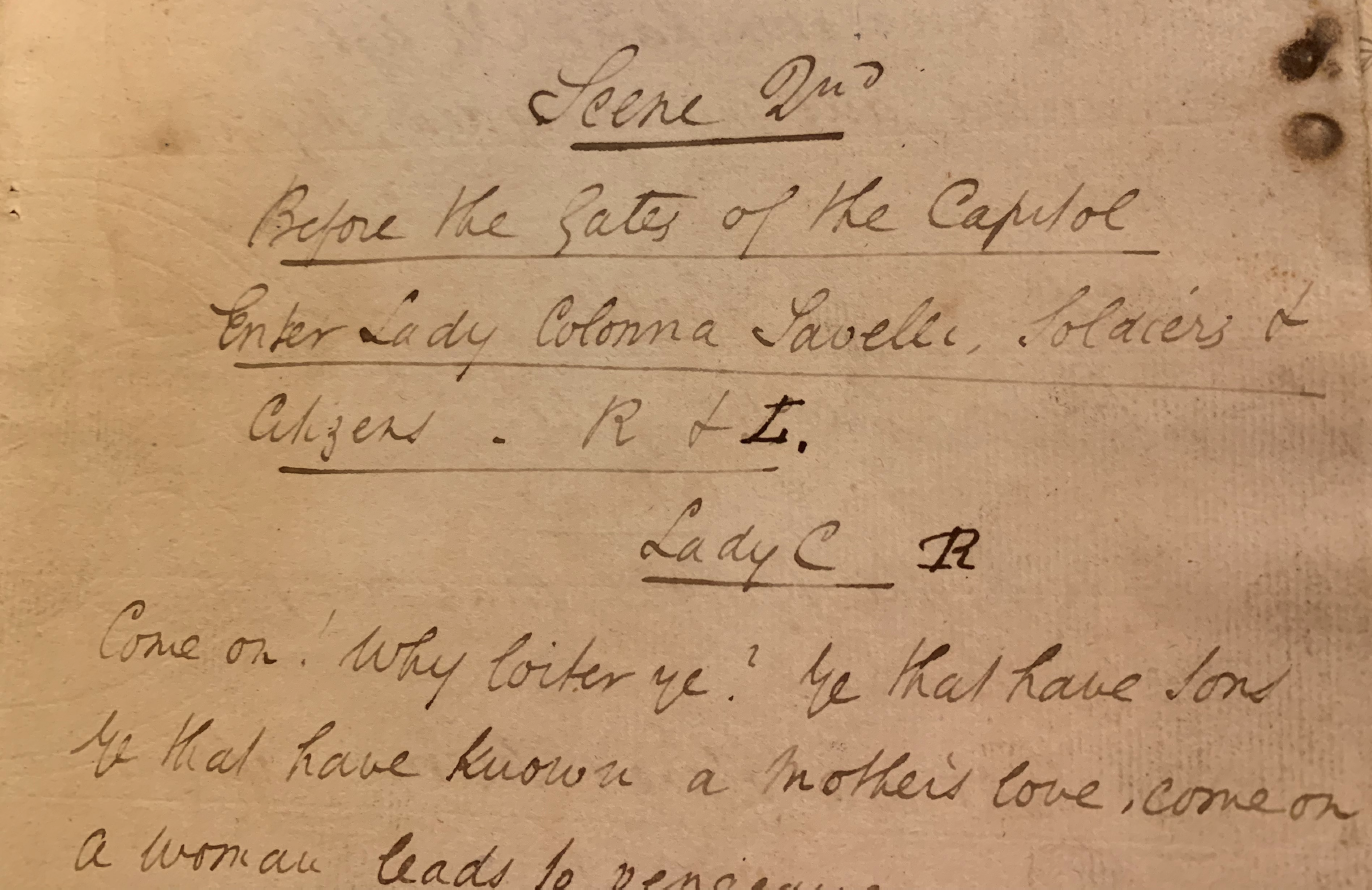 Scene 2nd
Before the Gates of the Capitol
Enter Lady Colonna Savelli, Soldiers &
Citizens - R & L.
Lady C R
Come on! Why loiter ye? Ye that have sons
Ye that have known a Mother's love, come on
A woman leads to vengeance